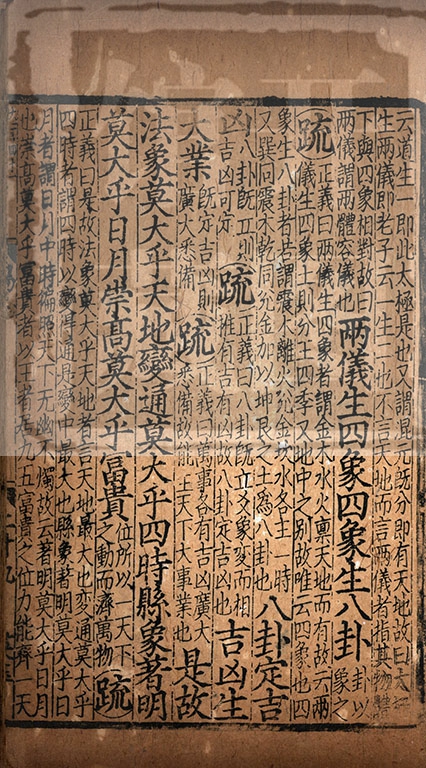 云道生一即此太極是也又謂混元既分即有天地故曰太極
生兩儀即老子云一生二也不言天地而言兩儀者指其物體
下與四象相對故曰兩儀謂兩體容儀也 兩儀生四象四象生八卦 卦以象之
疏 正義曰兩儀生四象者謂金木水火稟天地而有故云兩
儀生四象土則分王四季又地中之別故唯云四象也四
象生八卦者若謂震木離火兌金坎水各主一時又巽同震木乾同兌金加以坤艮之土為八卦也 八卦定吉
凶 八卦既立則吉凶可定 疏 正義曰八卦既立爻象變而相推有吉有凶故八卦定吉凶也 吉凶生
大業 既定吉凶則廣大悉備 疏 正義曰萬事各有吉凶廣大悉備故能王天下大事業也 是故
法象莫大乎天地變通莫大乎四時縣象著明
莫大乎日月崇高莫大乎富貴 位所以一天下之動而濟萬物 疏
正義曰是故法象莫大乎天地者言天地最大也變通莫大乎
四時者謂四時以變得通是變中最大也縣象著明莫大乎日
月者謂日月中時徧照天下无幽不燭故云著明莫大乎日月
也崇高莫大乎富貴者以王者居九五富貴之位力能齊一天